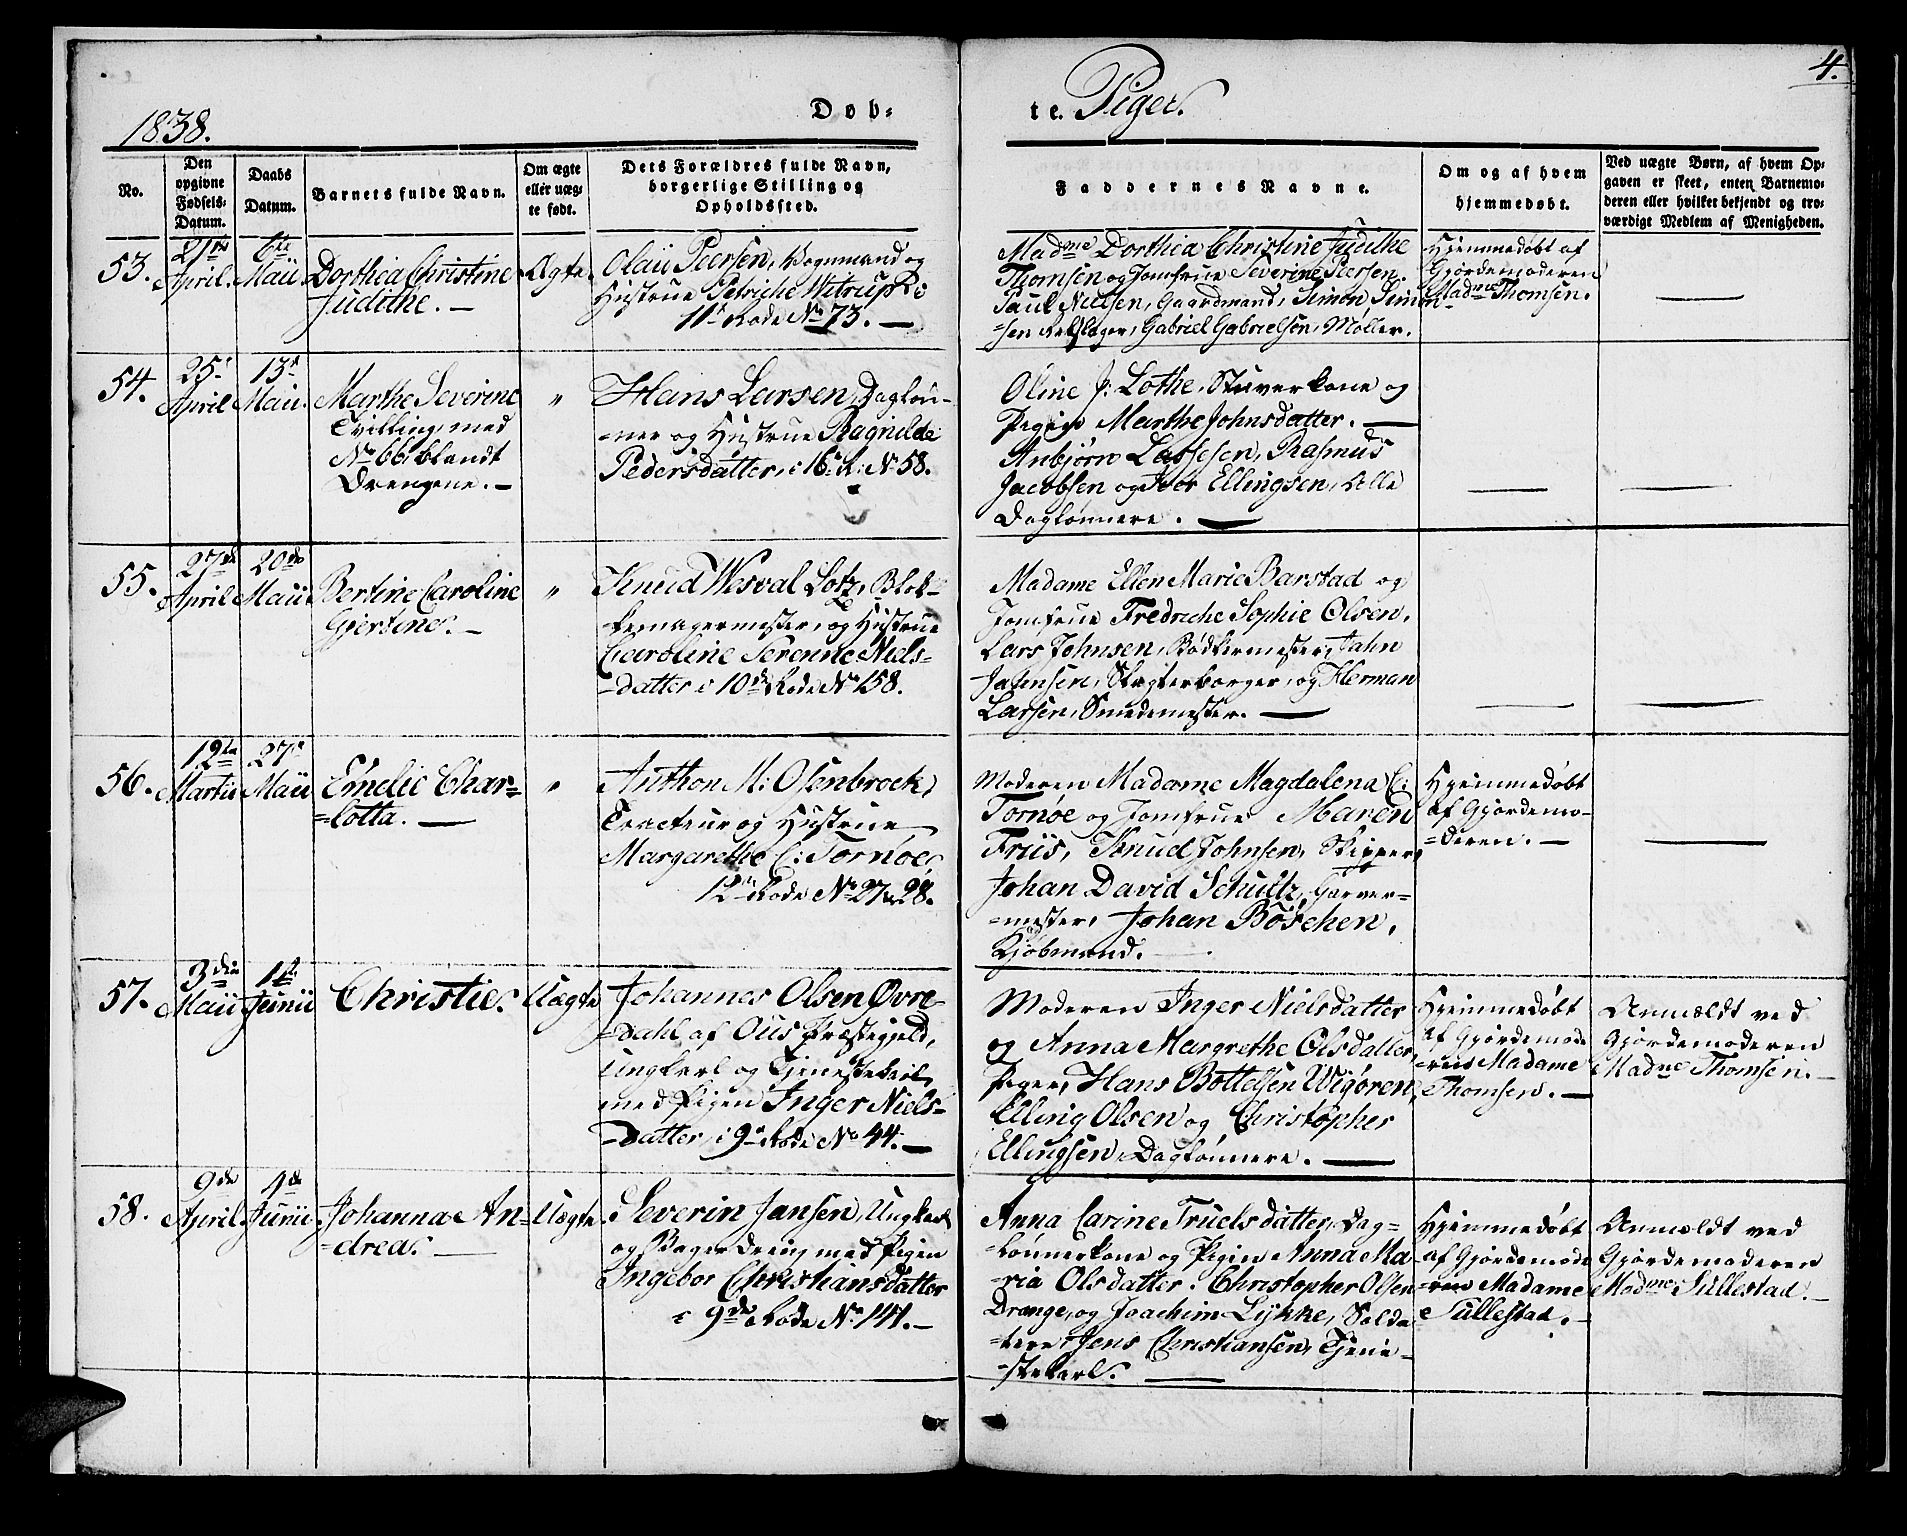 4.
1838.
Døb-
te Piger.
No.
Den opgivne Fødsels-Datum.
Daabs Datum.
Barnets fulde Navn.
Om ægte eller uæg-te født.
Dets Forældres fulde Navn, borgerlige Stilling og Opholdssted.
Faddernes Navne.
Om og af hvem hjemmedøbt.
Ved uægte Børn, af hvem Op-gaven er skeet, enten Barnemo-deren eller hvilket bekjendt og tro-værdigt Medlem af Menigheden.
53.
21de April.
6te Maii
Dorthea Christine
Judithe. —
Ægte.
Olaü Peersen, Vognmand og
Hustrue Petriche Witrup i
11te Rode No 73. —
Madme Dorthea Christine Judithe
Thomsen og Jomfrue Severine Peersen.
Paul Nielsen, Gaardmand, Simon Simon-
=sen Rebslager, Gabriel Gabrielsen, Møller.
Hjemmedøbt af
Gjordemoderen
Madme Thomsen.
54.
25de April
13de Maii.
Marthe Severine
Tvilling, med
No 66. blandt
Drengene. —
"
Hans Larsen, Dagløn-
=ner og Hustrue Ragnilde
Pedersdatter, i 16: R: No 58.
Oline J: Lothe, Stuverkone og
Pigen Marthe Johnsdatter. —
Anbjørn Lassesen, Rasmus
Jacobsen og Iver Ellingsen, Alle
Daglønnere. —
55.
27de April
20de Maii
Bertine Caroline
Gjertine. —
"
Knud Wesval Lotz, Blok-
kemagermester, og Hustrue
Caroline Serenne Niels-
=datter i 10de Rode No 158.
Madame Ellen Marie Barstad og
Jomfrue Fredriche Sophie Olsen,
Lars Johnsen, Bødkermester, Jahn
Jahnsen, Slagterborger, og Herman
Larsen, Smedemester. —
56.
12te Martii
27de Maii
Emelie Char=
=lotta. —
"
Anthon M: Osenbroek,
Tracteur og Hustrue
Margarethe C: Tornøe
12te Rode No 27 & 28.
Moderen Madame Magdalena C:
Tornøe og Jomfrue Maren
Friis, Knud Johnsen, Skipper,
Johan David Schultz, Garver-
=mester, Johan Böschen,
Kjøbmand.
Hjemmedøbt
af Gjordemo-
=deren. —
57.
3die Maii
1te Junii
Christie.
Uægte
Johannes Olsen Øvre=
=Dahl af Ous Præstegjeld,
Ungkarl og Tjenestekarl,
med Pigen Inger Niels=
=datter, i 9de Rode No 44. —
Moderen Inger Nielsdatter
og Anna Margrethe Olsdatter,
Piger, Hans Bottelsen Wigøren,
Elling Olsen og Christopher
Ellingsen, Daglønnere. —
Hjemmedøbt
af Gjordemode
=ren Madame
Thomsen. —
Anmeldt ved
Gjordemoderen
Madme Thomsen. —
58.
9de April.
4de Junii
Johanna An-
=drea. —
Uægte.
Severin Jansen, Ungkarl
og Bagerdreng med Pigen
Ingebor Christiansdatter
i 9de Rode No 141. —
Anna Carine Truelsdatter, Dag=
=lønnerkone og Pigen Anna Ma
=ria Olsdatter. Christopher Olsen
Drange, og Joachim Lykke, Solda
=tere, Jens Christiansen, Tjene-
=stekarl. —
Hjemmedøbt
af Gjordemode
=ren Madame
Tullestad. —
Anmeldt ved
Gjordemoderen
Madme Tullestad. —